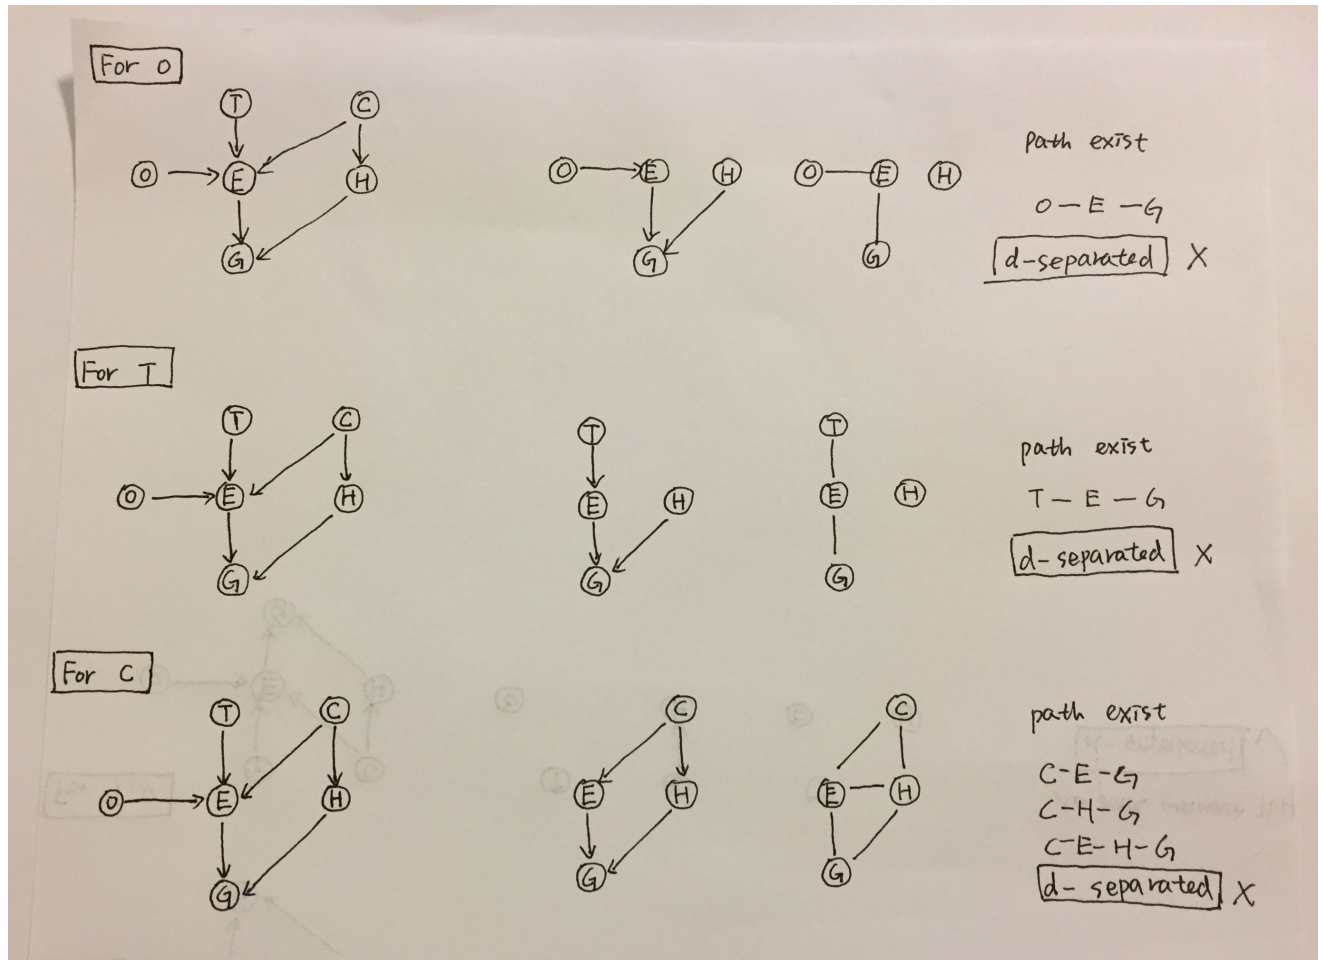 For O
T C
O E H
G
O E H
G
O E H
G
path exist
O - E - G
d-separated X
For T
T C
O E H
G
T
E H
G
T
E H
G
path exist
T - E - G
d-separated X
For C
T C
O E H
G
C
E H
G
C
E H
G
path exist
C-E-G
C-H-G
C-E-H-G
d-separated X